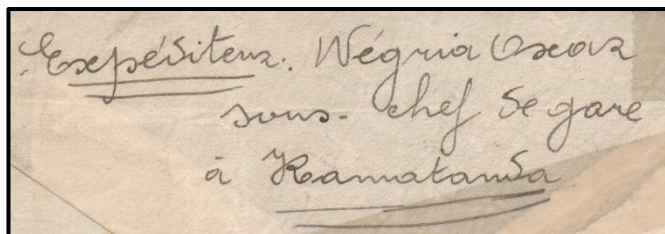 Expéditeur. Négria Oscar
sous-chef de gare
à Kamatanda